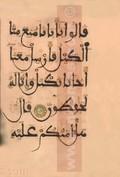 قالوا يابانا منع منا
الكيل فارسل معنا
اخانا نكتل وانا له
لحفظون قال
هل امنكم عليه